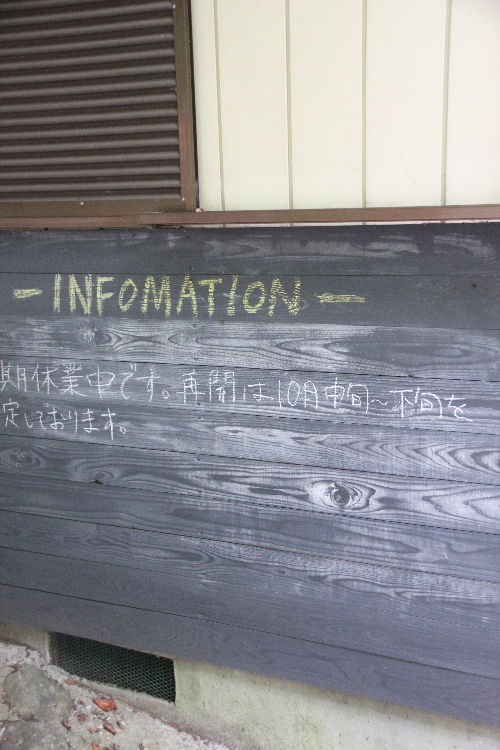 - INFOMATION -
期休業中です。再開は10月中旬~下旬を
定しております。